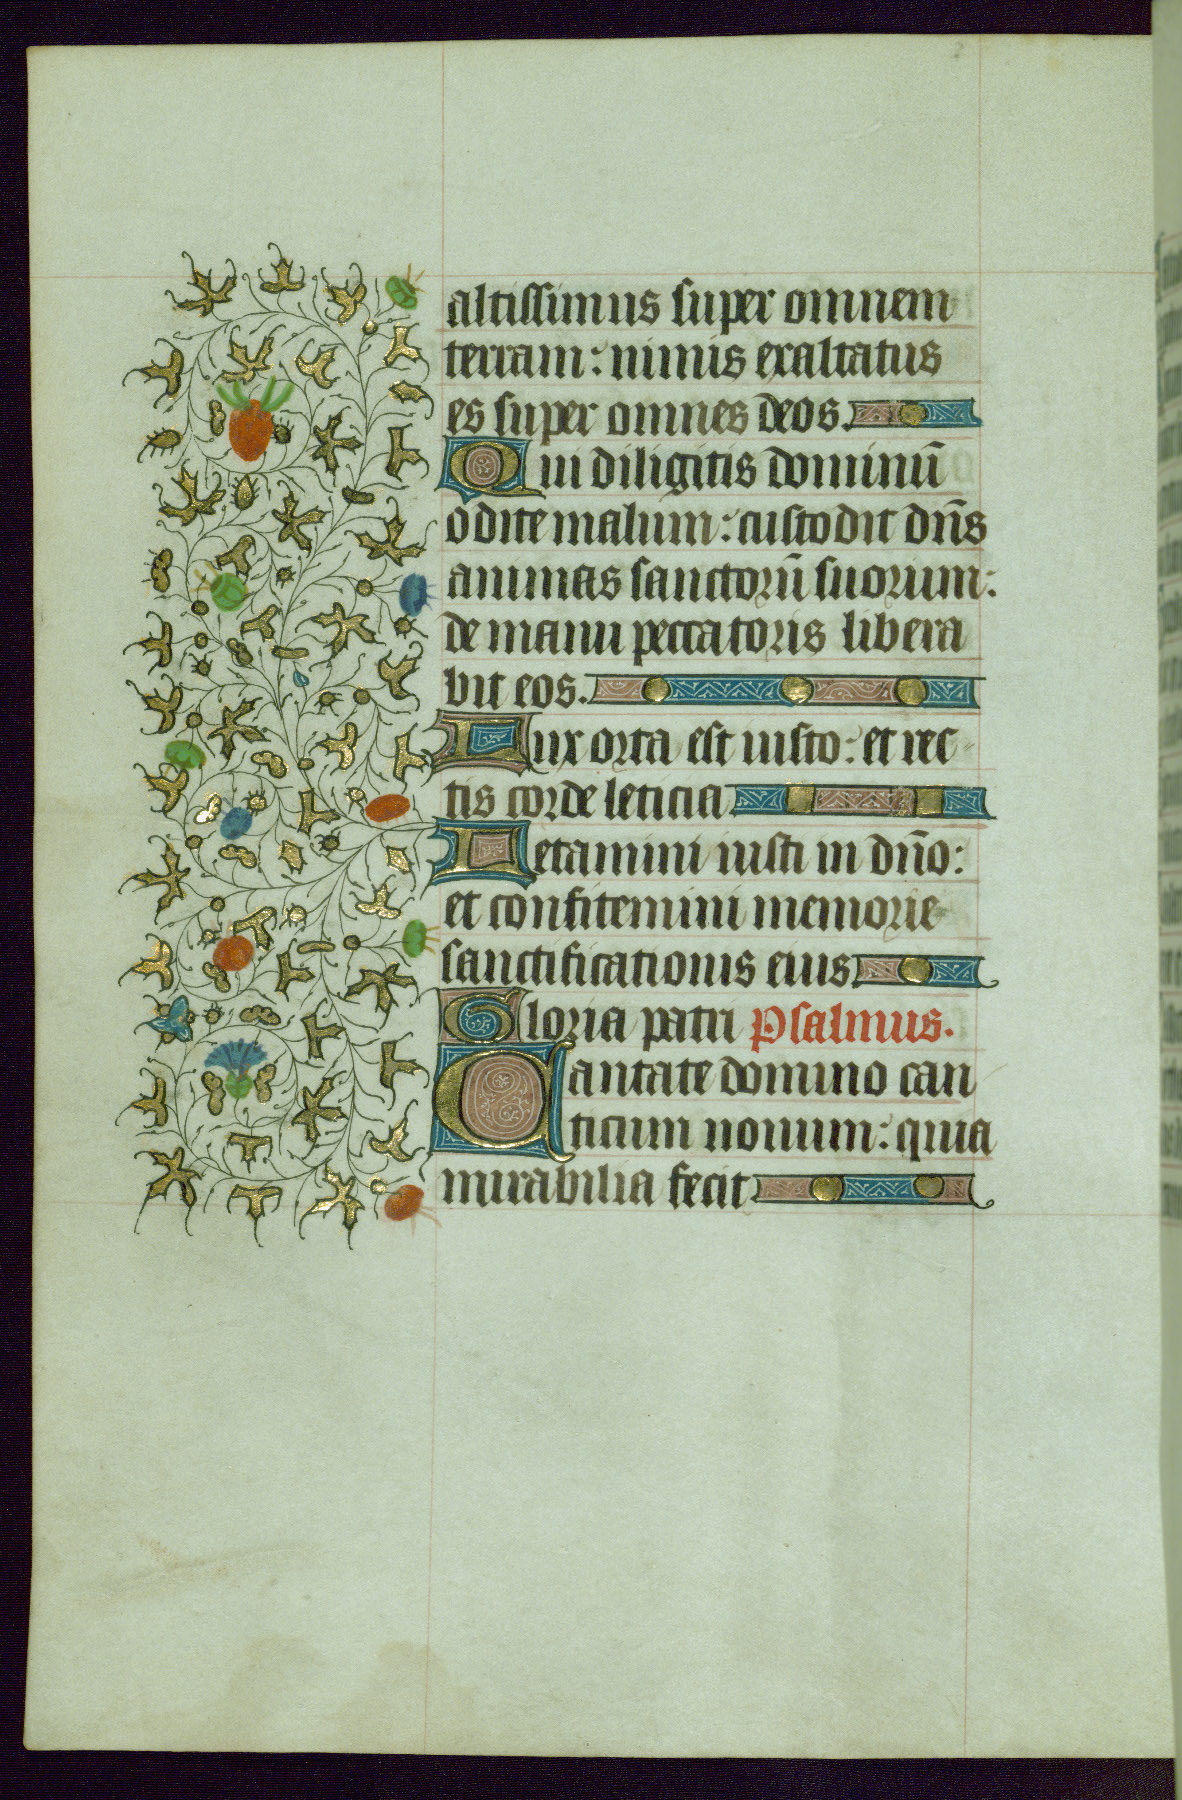 altissimus super omnem
terram: nimis exaltatus
es super omnes deos.
Qui diligitis dominū
odite malum: custodit dn̄s
animas sanctorū suorum:
de manu peccatoris libera
bit eos.
Lux orta est iusto: et rec-
tis corde leticia
Letamini iusti in dn̄o:
et confitemini memorie
sanctificationis eius
Gloria patri Psalmus.
Cantate domino can
ticum nouum: quia
mirabilia fecit